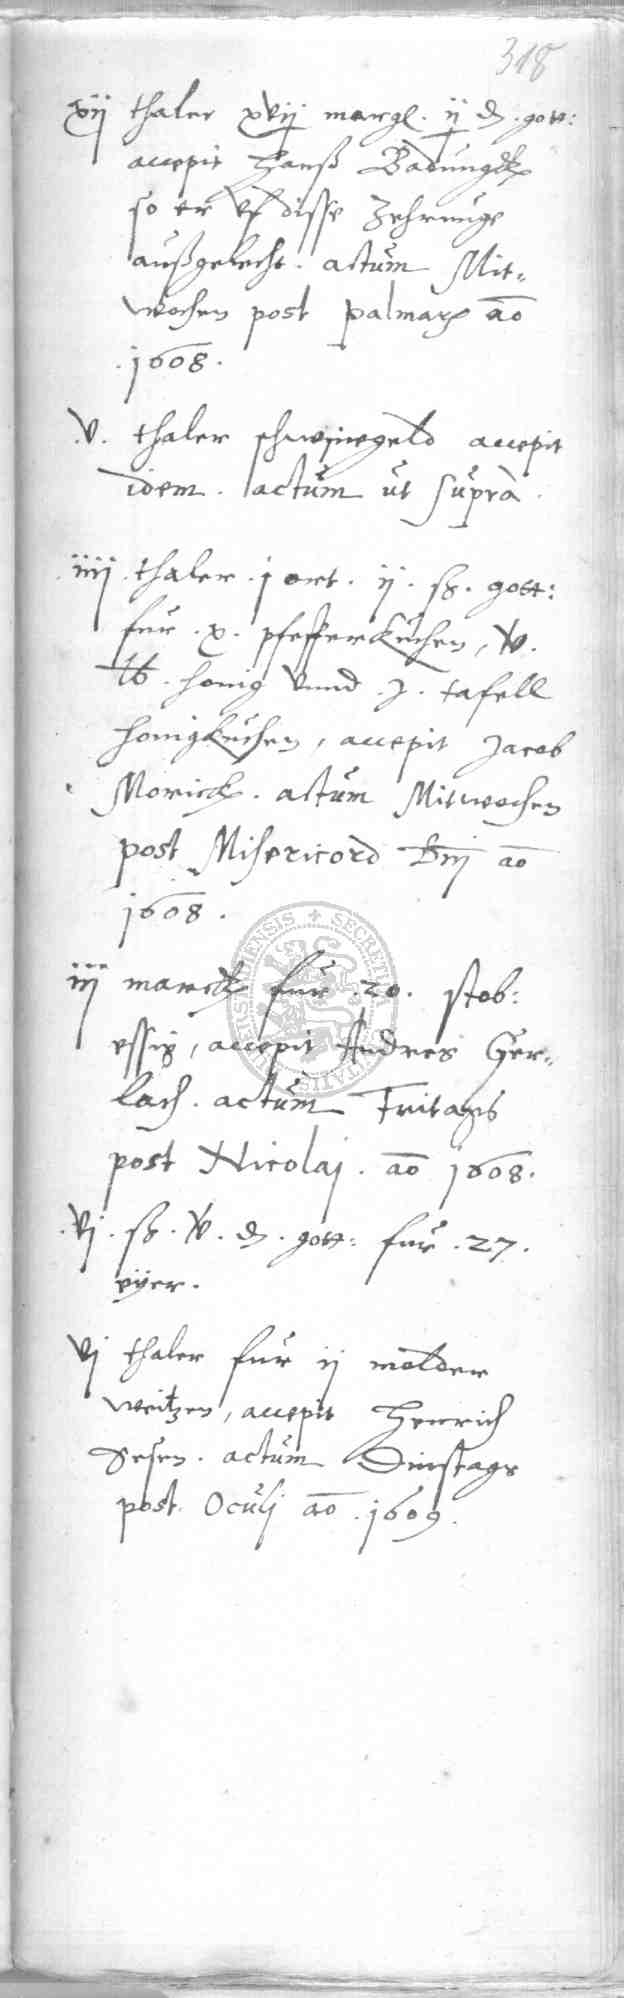 318
xij thaler xvij margl. ij d. gott:
accepit Hanß Badungk
so er vf disse Zehrunge
außgelecht. actum Mit-
wochen post palmar ao
.1608.
.v. thaler schwynegeld accepit
idem. actum ut supra.
.iiij. thaler .j ort. ij. sch. gott:
fur .x. pfefferkuchen, v.
lb. honig vnnd .j. tafell
honigkuchen, accepit Jacob
Morick. actum Mitwochen
post Misericord Dnj ao
1608.
iij marck fur .20. stob:
essig, accepit Andres Ger-
lach. actum Fritags
post Nicolaj. ao 1608.
.vj. sch. v. d. gott: fur .27.
eyer.
vj thaler fur ij molder
weitzen, accepit Henrich
Sesen. actum Dinstags
post Oculj ao .1609.
SECRETI CIVITATIS